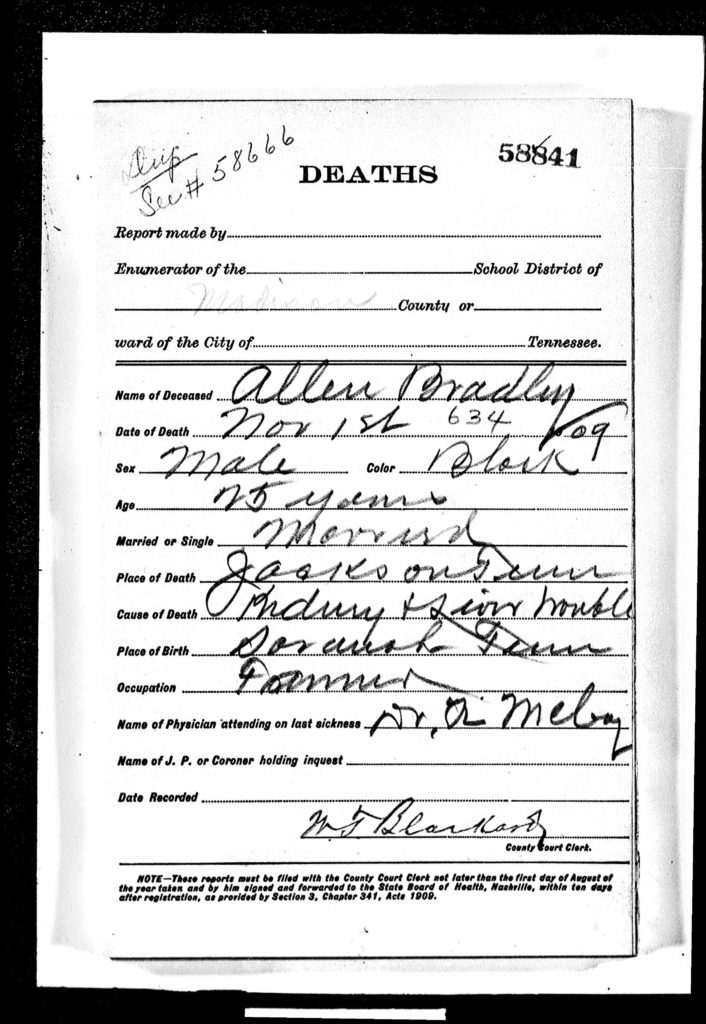 Dup
See # 58666
58841
DEATHS
Report made by
Enumerator of the School District of
Madison County or
ward of the City of Tennessee.
Name of Deceased Allen Bradley
Date of Death Nov 1st 634 / 09
Sex Male Color Black
Age 75 years
Married or Single Married
Place of Death Jackson Tenn
Cause of Death Kidney & Liver trouble
Place of Birth Savanah Tenn
Occupation Farmer
Name of Physician attending on last sickness Dr,
Name of J. P. or Coroner holding inquest
Date Recorded
W T Blackard
County Court Clerk.
NOTE—These reports must be filed with the County Court Clerk not later than the first day of August of
the year taken and by him signed and forwarded to the State Board of Health, Nashville, within ten days
after registration, as provided by Section 3, Chapter 341, Acts 1909.